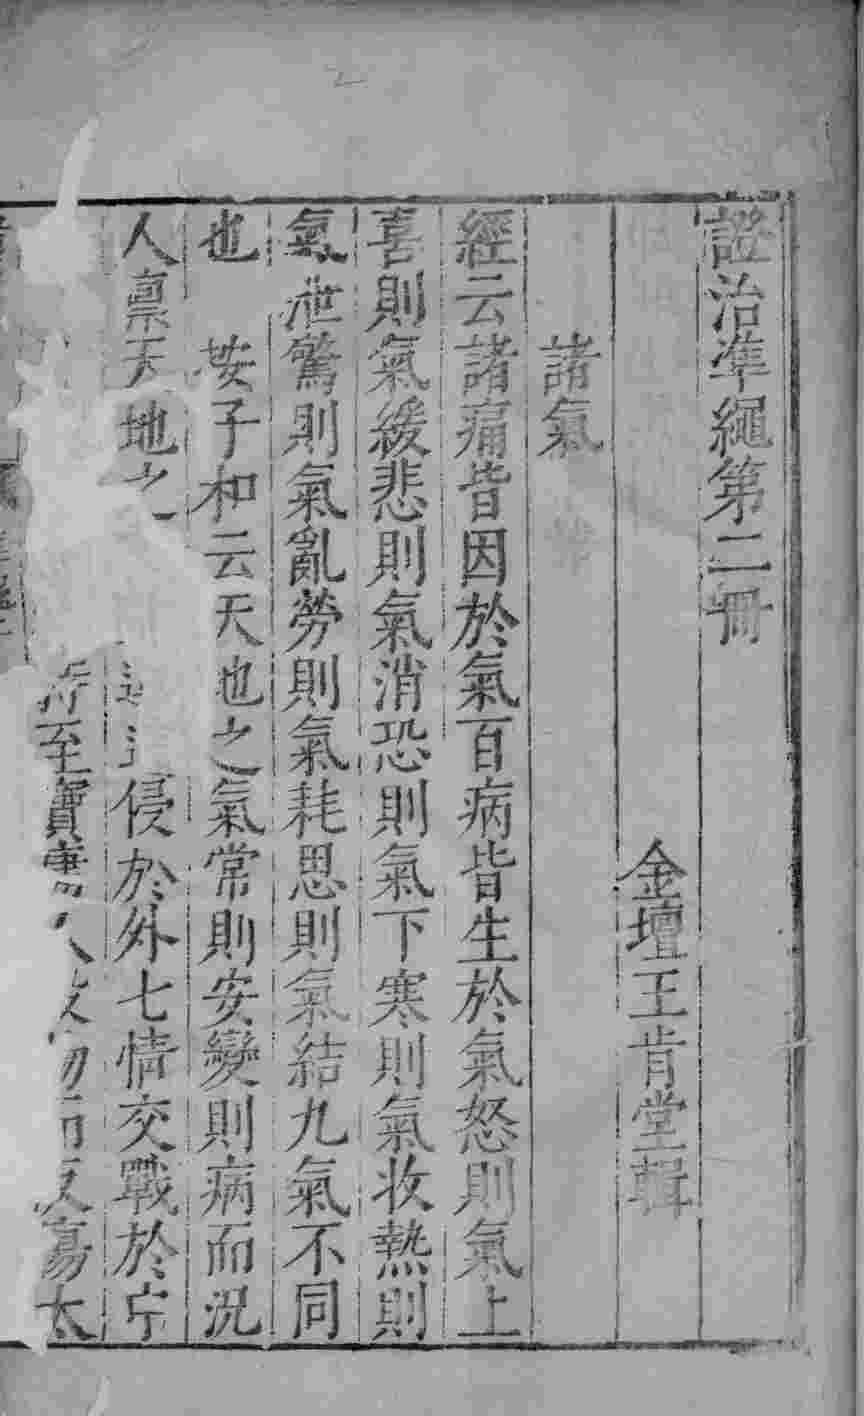 證治準繩第二冊
金壇王肯堂輯
諸氣
經云諸痛皆因於氣百病皆生於氣怒則氣上
喜則氣緩悲則氣消恐則氣下寒則氣收熱則
氣泄驚則氣亂勞則氣耗思則氣結九氣不同
也 子和云天地之氣常則安變則病而況
人禀天地之侵於外七情交戰於中
至寶
反傷太